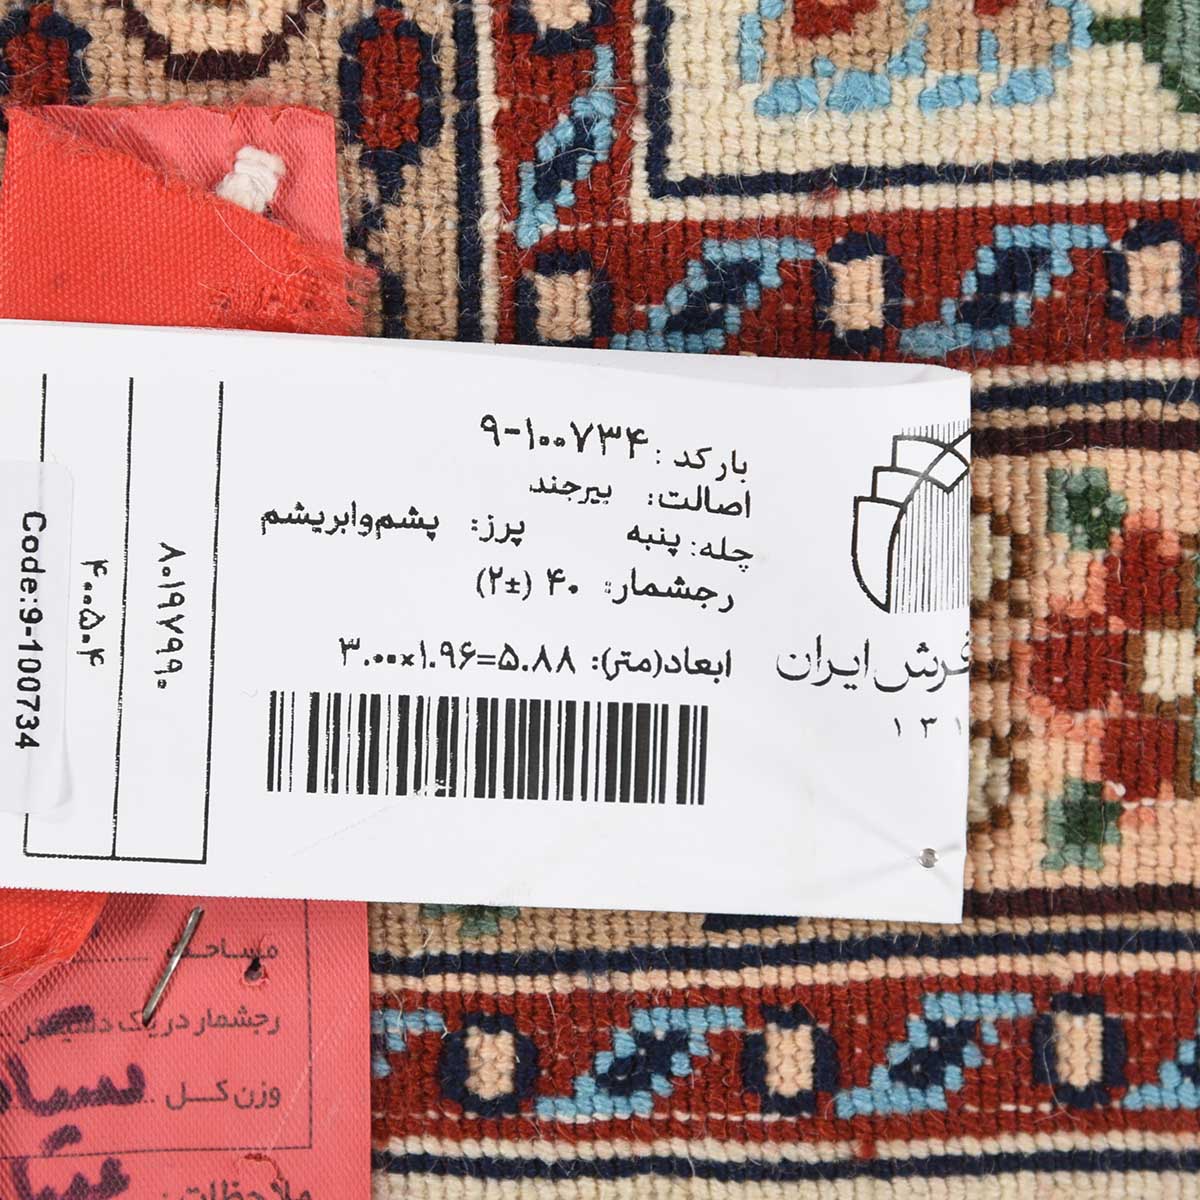 بارکد: ۹-۱۰۰۷۳۴
اصالت: بیرجند
چله: پنبه پرز: پشم‌وابریشم
رجشمار: ۴۰ (±۲)
ابعاد(متر): ۳.۰۰×۱.۹۶=۵.۸۸
فرش ایران
۱۳۱
۸۰۱۹۷۹۹۰
۴۰۰۵۰۴
Code:9-100734
مساحت
رجشمار در یک دسیمتر
وزن کل
ملاحظات: